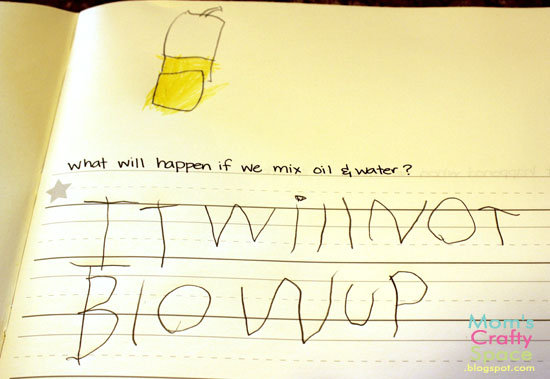 what will happen if we mix oil & water?
IT WillNOT
BlOWUP
Mom's
Crafty
Space
.blogspot.com